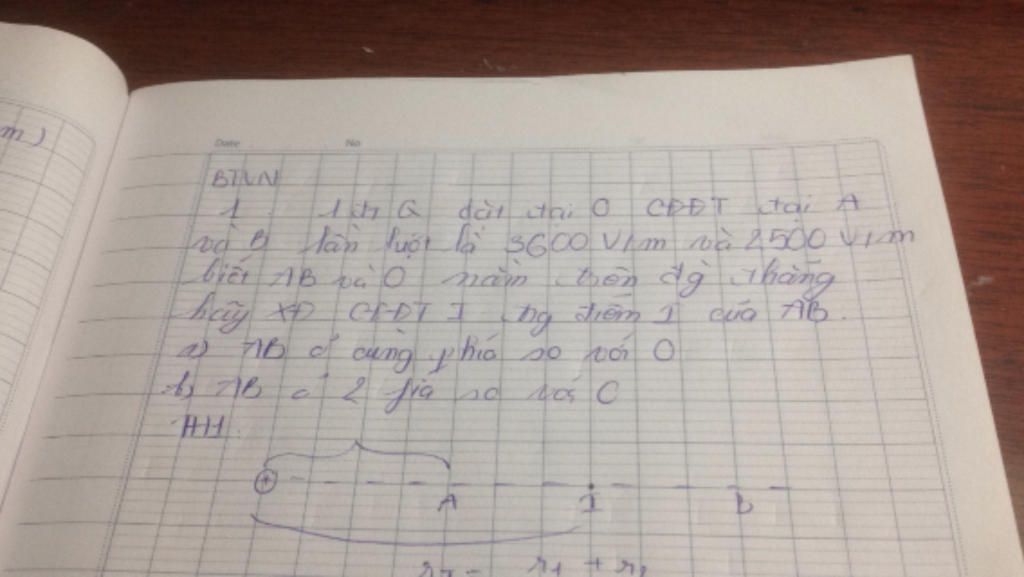 m)
Date No
BTVN
1. 1đt Q đặt tại O CĐĐT tại A
và B lần lượt là 3600 V/m và 2500 V/m
biết AB và O nằm trên đg thẳng
hãy XĐ CĐĐT I tg điểm I của AB.
a) AB ở cùng phía so với O
b) AB ở 2 fía so với O
TH1.
+ A I B
r1 + r2